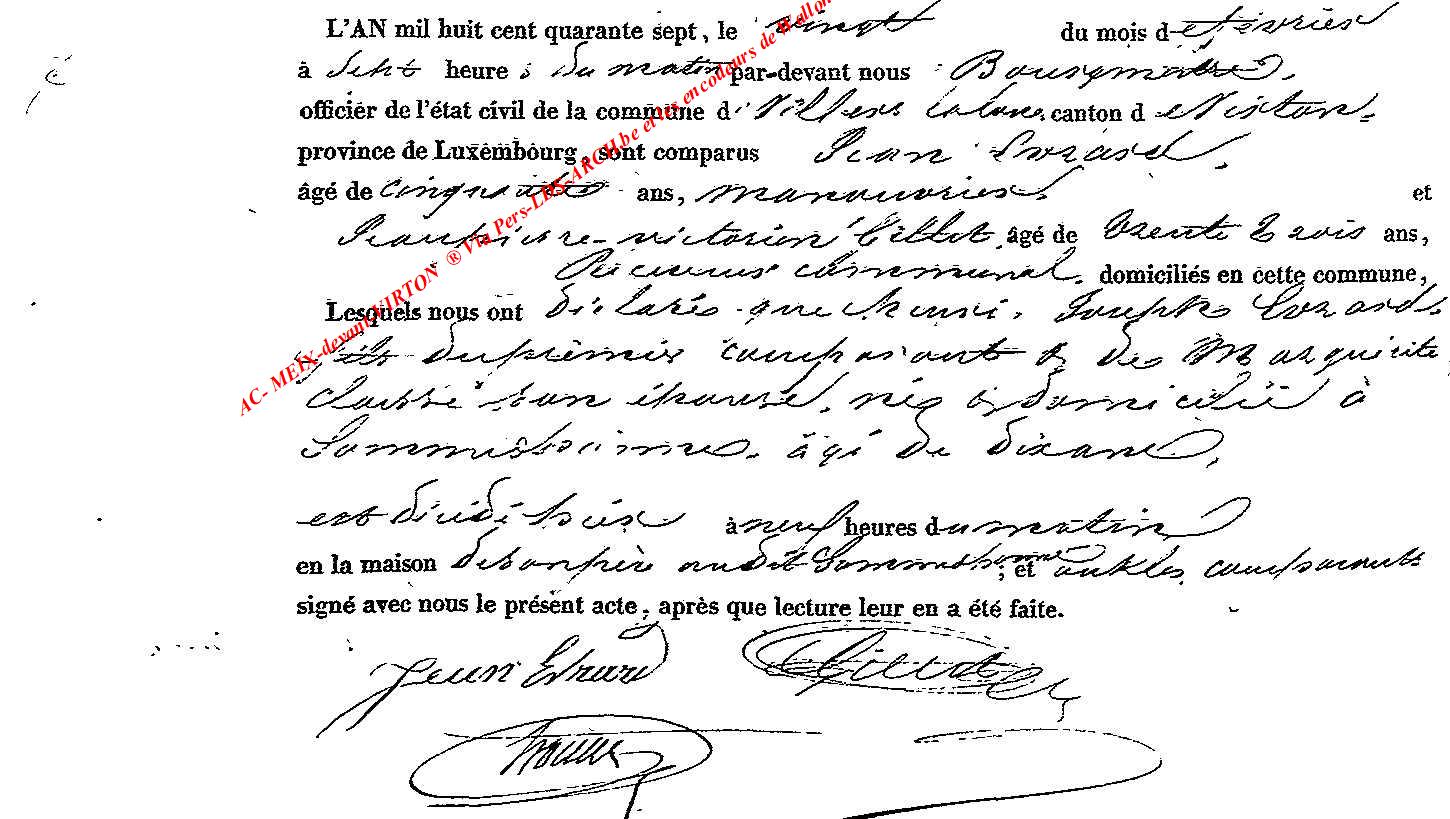 L'AN mil huit cent quarante sept, le vingt du mois de février
à sept heures du matin par-devant nous Bourgmestre,
officier de l'état civil de la commune de Villers canton de Virton,
province de Luxembourg, sont comparus Jean Evrard,
âgé de cinquante ans, manouvrier et
Jean pierre victorien Gillet âgé de trente trois ans,
Receveur communal, domiciliés en cette commune,
Lesquels nous ont déclaré que henri Joseph Evrard
fils du premier comparant & de Marguerite
son épouse, né & domicilié à
Sommethonne, âgé de dix ans,
est décédé hier à neuf heures du matin
en la maison de son père audit Sommethonne, et ont les comparants
signé avec nous le présent acte, après que lecture leur en a été faite.
Jean Evrard
AC- MEIX-devant-VIRTON ® Via Pers-LDS-ARCH.be et les encodeurs de Wallon